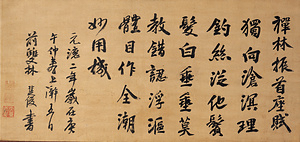 禪林振首座賦
獨向滄溟理
釣絲從他鬢
髮白垂垂莫
教錯認浮漚
體目作全潮
妙用機
元漉二年歲在庚
午仲春上澣五日
前雙林
書